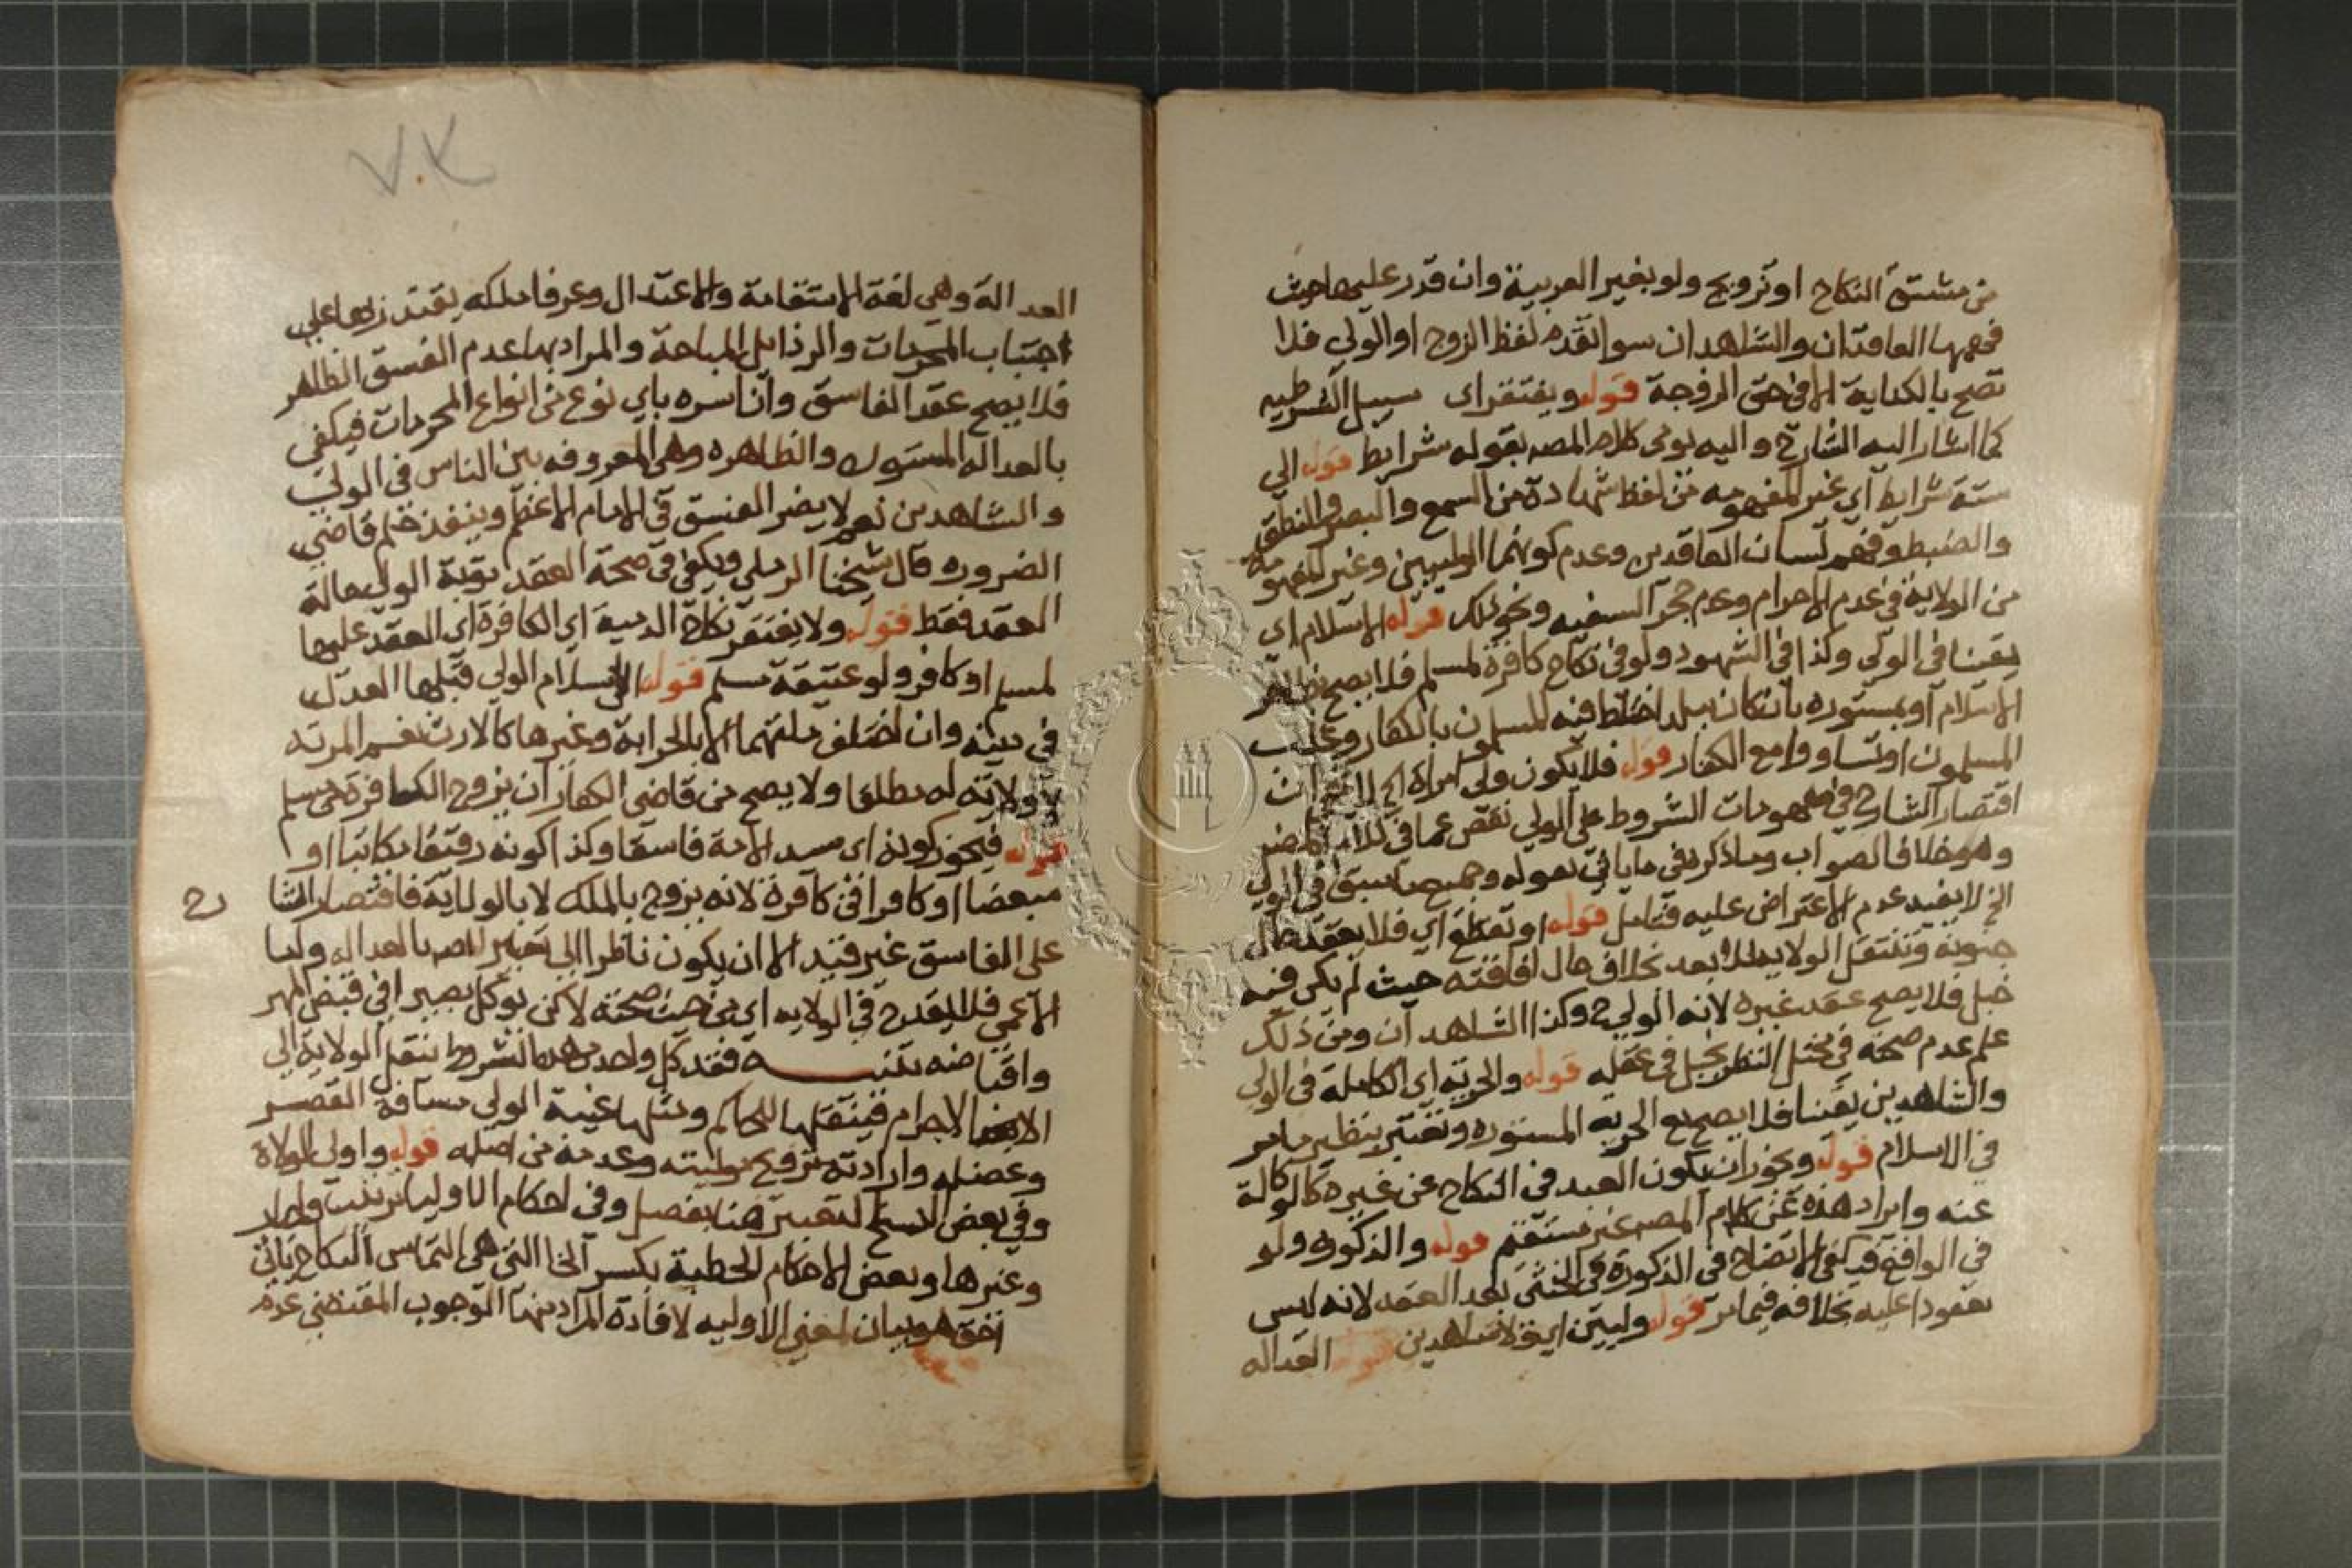 من مشتق النكاح او تزويج ولو بغير العربية وان قدر عليها حيث
فهمها العاقدان والشاهدان سوا تقدم لفظ الزوج او الولي فلا
تصح بالكناية الا في حق الزوجة قوله ويفتقر اي سبيل الشرطيه
كما اشار اليه الشارح واليه يومي كلام المصه بقوله شرايط قوله الي
ستة شرايط اي غير المفهومه من لفظ شهادة من السمع والبصر والنطق
والضبط وفهم لسان العاقدين وعدم كونهما الوليين وغير المفهومة
من الولاية في عدم الاحرام وعدم حجر السفيه ونحو ذلك قوله الاسلام اي
يقينا في الولي وكذا في الشهود ولو في نكاح كافرة لمسلم فلا يصح بظاهر
الاسلام او بمستوره بان كان ببلد اختلط فيه المسلمون بالكفار وغلب
المسلمون او تساووا مع الكفار قوله فلا يكون ولي امراة الخ
اقتصار الشارح في مفهومات الشروط على الولي نقص عما في كلام المصه
وهو خلاف الصواب وما ذكره في ما ياتي بقوله وجميع ما سبق في الولي
الخ لا يفيد عدم الاعتراض عليه فتامل قوله او تقطع اي فلا يعقد حال
جنونه وتنتقل الولايه للابعد بخلاف حال افاقته حيث لم يكن فيه
خبل فلا يصح عقد غيره لانه الولي ح وكذا الشاهدان ومن ذلك
علم عدم صحته في مختل النظر بخبل في عقله قوله والحرية اي الكاملة في الولي
والشاهدين يقينا فلا يصح مع الحريه المستوره وتعتبر بنظير ما مر
في الاسلام قوله ويجوز ان يكون العبد في النكاح عن غيره كالوكالة
عنه وايراد هذه على كلام المصه غير مستقيم قوله والذكوره ولو
في الواقع فيكفي الاتضاح في الذكورة في الخنثي بعد العقد لانه ليس
معقودا عليه بخلافه فيما مر قوله وليين اي ولا شاهدين قوله العداله
العدالة وهي لغة الاستقامة والاعتدال وعرفا ملكه يقتدر بها على
اجتناب المحرمات والرذايل المباحة والمراد بها عدم الفسق الظاهر
فلا يصح عقد الفاسق وان اسره باي نوع من انواع المحرمات فيكفي
بالعداله المستوره والظاهره وهي المعروفه بين الناس في الولي
والشاهدين نعم لا يضر الفسق في الامام الاعظم وينفذ حكم قاضي
الضروره قال شيخنا الرملي ويكفي في صحة العقد توبة الولي حالة
العقد فقط قوله ولا يفتقر نكاح الذمية اي الكافرة اي العقد عليها
لمسلم او كافر ولو عتيقة مسلم قوله الي اسلام الولي فيليها العدل
في دينه وان اختلف ملتهما الا بالحرابة وغيرها كالارث نعم المرتد
لا ولاية له مطلقا ولا يصح من قاضي الكفار ان يزوج الكافرة من مسلم
قوله فيجوز كونه اي سيد الامة فاسقا وكذا كونه رقيقا مكاتبا او
مبعضا او كافرا في كافرة لانه يزوج بالملك لا بالولاية فاقتصار الشا
ح
على الفاسق غير قيد الا ان يكون ناظرا الي تعبير المصه بالعداله واما
الاعمى فلا يقدح في الولايه اي من حيث صحته لاكن يوكل بصيرا في قبض المهر
واقباضه تنبيه فقد كل واحد من هذه الشروط ينقل الولاية الي
الابعد الا الاحرام فينقلها للحاكم ومثلها غيبة الولي مسافة القصر
وعضله وارادته تزوج موليته وعدمه من اصله قوله واولي الولاة
وفي بعض النسخ لتعبيره هنا بفصل وفي احكام الاوليا
وغيرها وبعض الاحكام الخطبة بكسر الخا التي هي التماس النكاح
احق هو بيان لمعني الاوليه لا فادة المراد منها الوجوب المقتضي عدم